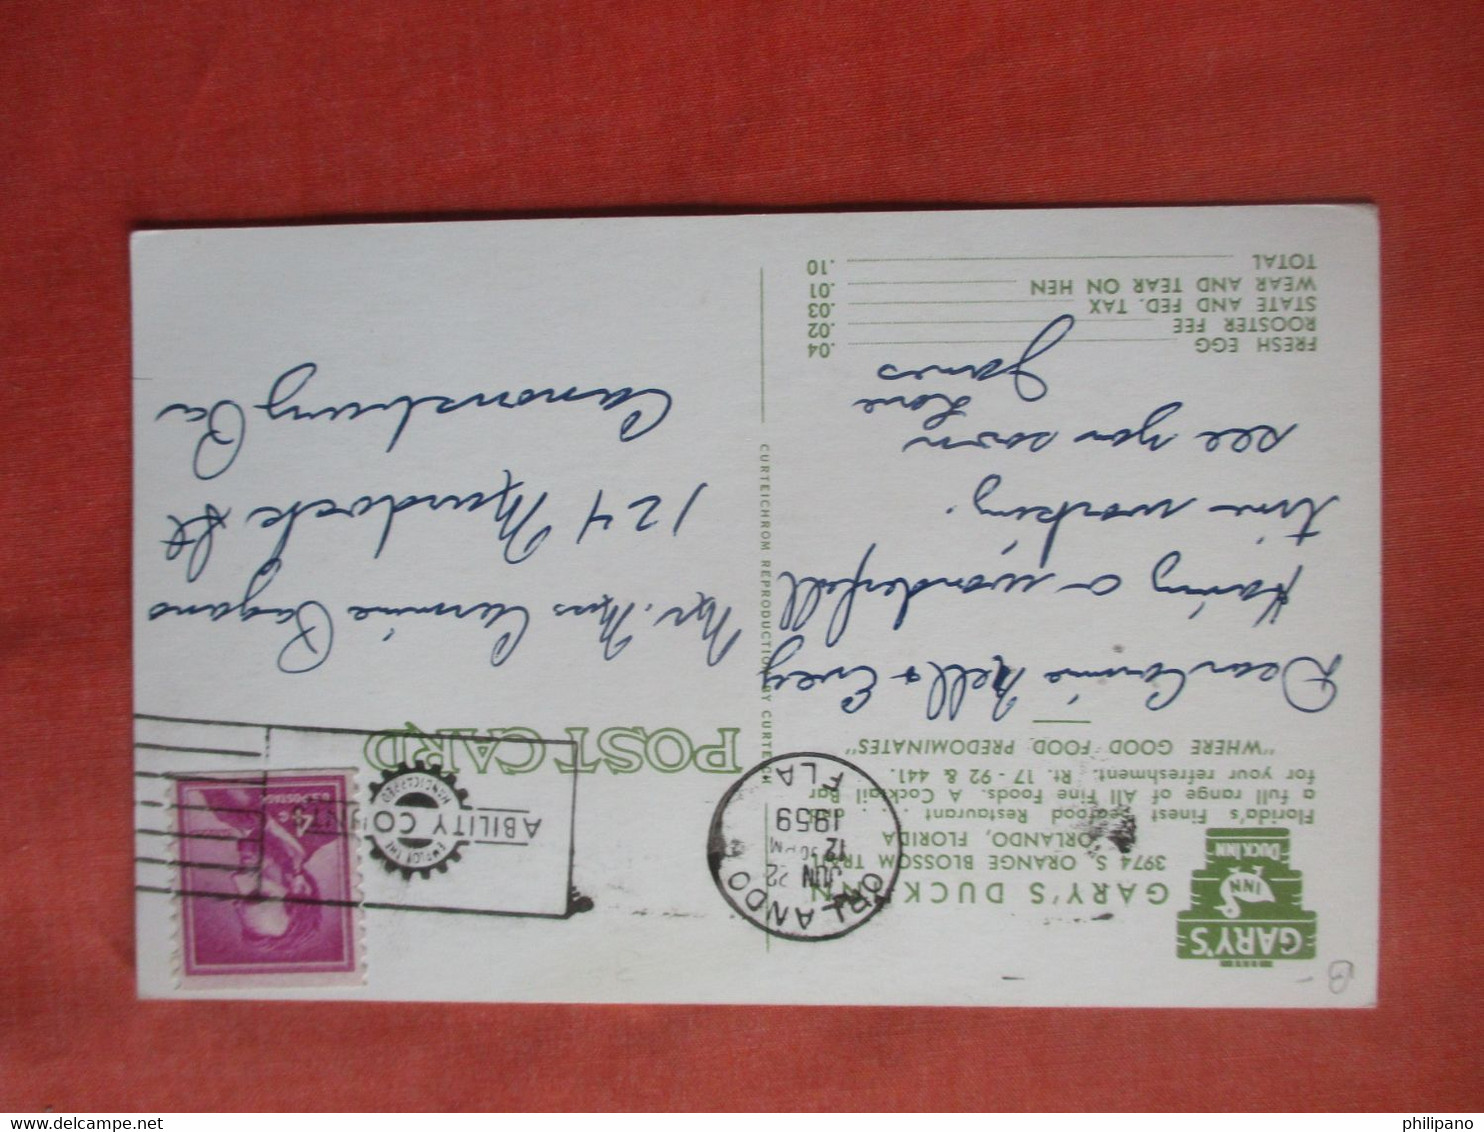 GARY'S
INN
DUCK INN
GARY'S DUCK INN
3974 S. ORANGE BLOSSOM TRAIL
ORLANDO, FLORIDA
Florida's Finest Seafood Restaurant . . .
a full range of All Fine Foods. A Cocktail Bar
for your refreshment. Rt. 17 - 92 & 441.
"WHERE GOOD FOOD PREDOMINATES"
Dear Connie Nell & Evey
Having a wonderfull
time working.
see you soon
Love
James
FRESH EGG .04
ROOSTER FEE .02
STATE AND FED. TAX .03
WEAR AND TEAR ON HEN .01
TOTAL .10
CURTEICHROM REPRODUCTION BY CURTEICH
POST CARD
ORLANDO
JUN 22
12 30 PM
1959
FLA
EMPLOY THE
HANDICAPPED
ABILITY COUNTS
4¢
U.S. POSTAGE
Mr. Mrs Carmine Pagano
124 Murdock St
Canonsburg Pa
philipano